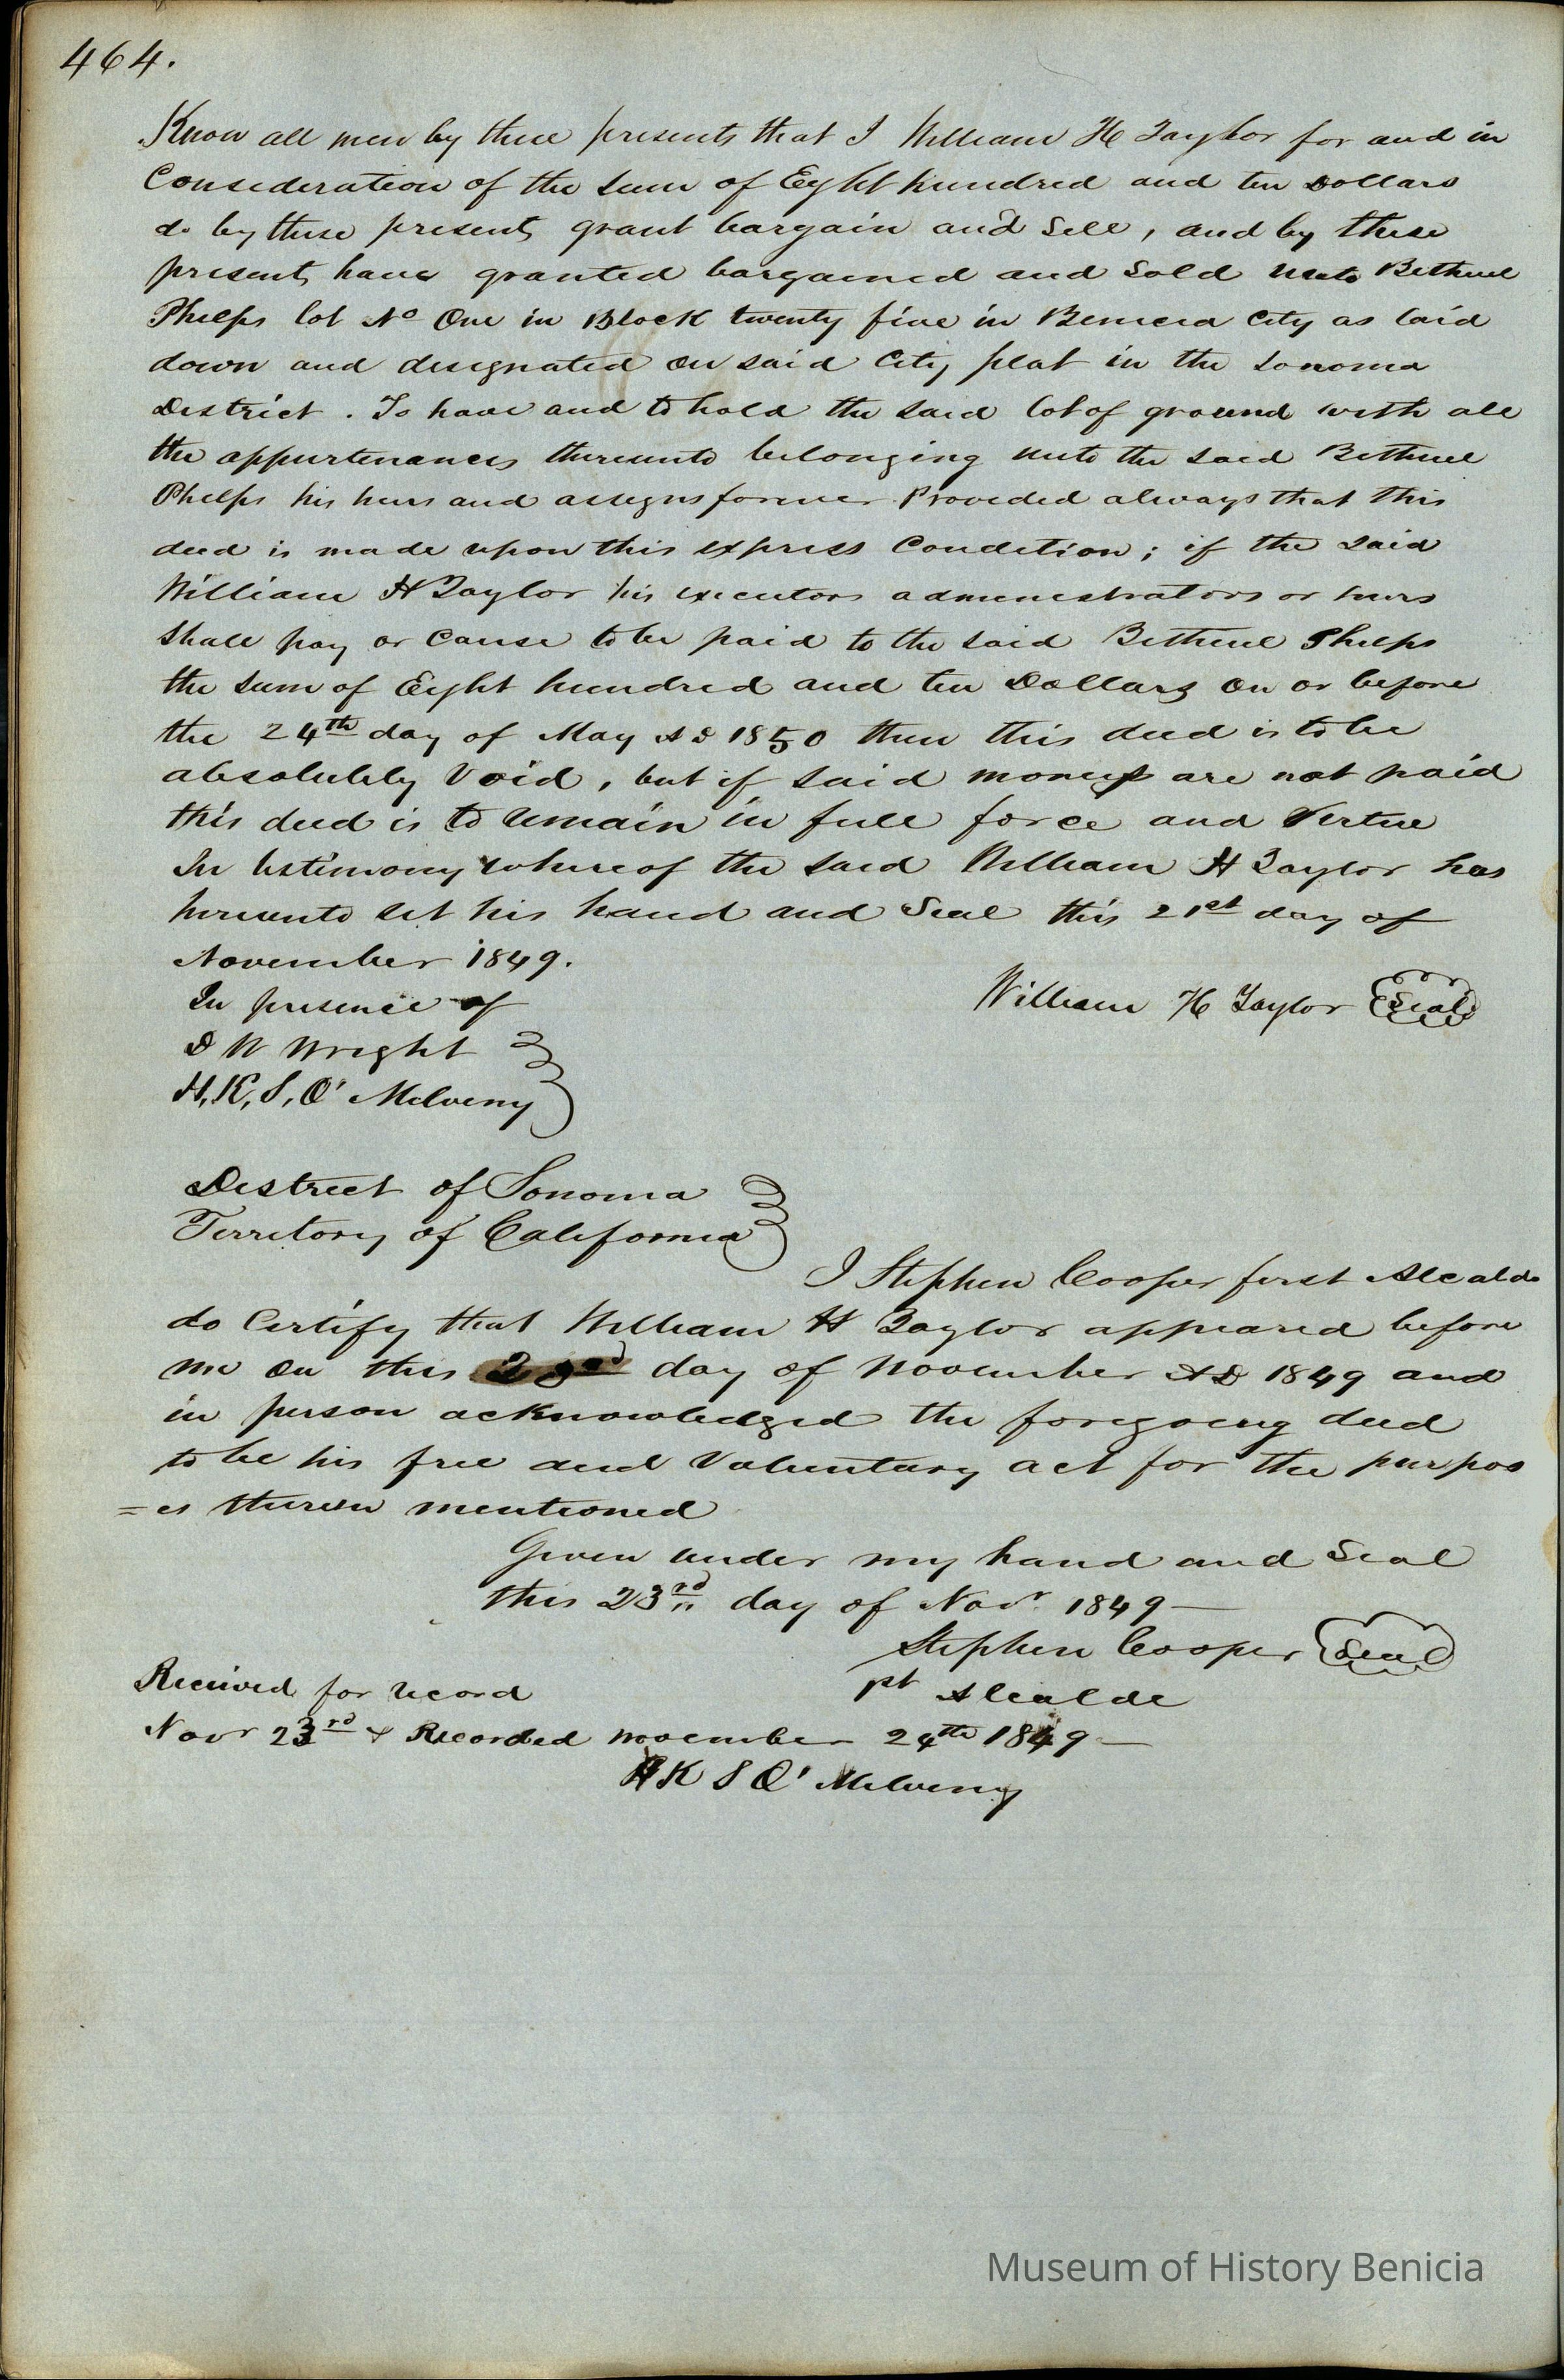 464.
Know all men by these presents that I William H Taylor for and in
Consideration of the sum of Eight hundred and ten Dollars
do by these presents grant bargain and Sell, and by these
presents have granted bargained and Sold unto Bethuel
Phelps lot No One in Block twenty five in Benicia City as laid
down and designated on said City plat in the Sonoma
District. To have and to hold the said lot of ground with all
the appurtenances thereunto belonging unto the said Bethuel
Phelps his heirs and assigns forever. Provided always that this
deed is made upon this express Condition; if the said
William H Taylor his executors administrators or heirs
Shall pay or Cause to be paid to the said Bethuel Phelps
the sum of Eight hundred and ten Dollars on or before
the 24th day of May AD 1850 then this deed is to be
absolutely Void, but if said moneys are not paid
this deed is to remain in full force and Virtue
In testimony whereof the said William H Taylor has
hereunto set his hand and Seal this 21st day of
November 1849.
In presence of
William H Taylor Seal
D W Wright
H, K, S, O' Melveny
District of Sonoma
Territory of California
I Stephen Cooper first Alcalde
do Certify that William H Taylor appeared before
me on this 23rd day of November AD 1849 and
in person acknowledged the foregoing deed
to be his free and Voluntary act for the purpos
=es therein mentioned
Given under my hand and Seal
this 23rd day of Novr 1849—
Stephen Cooper Seal
1st Alcalde
Received for record
Novr 23rd & Recorded november 24th 1849—
H K S O' Melveny
Museum of History Benicia